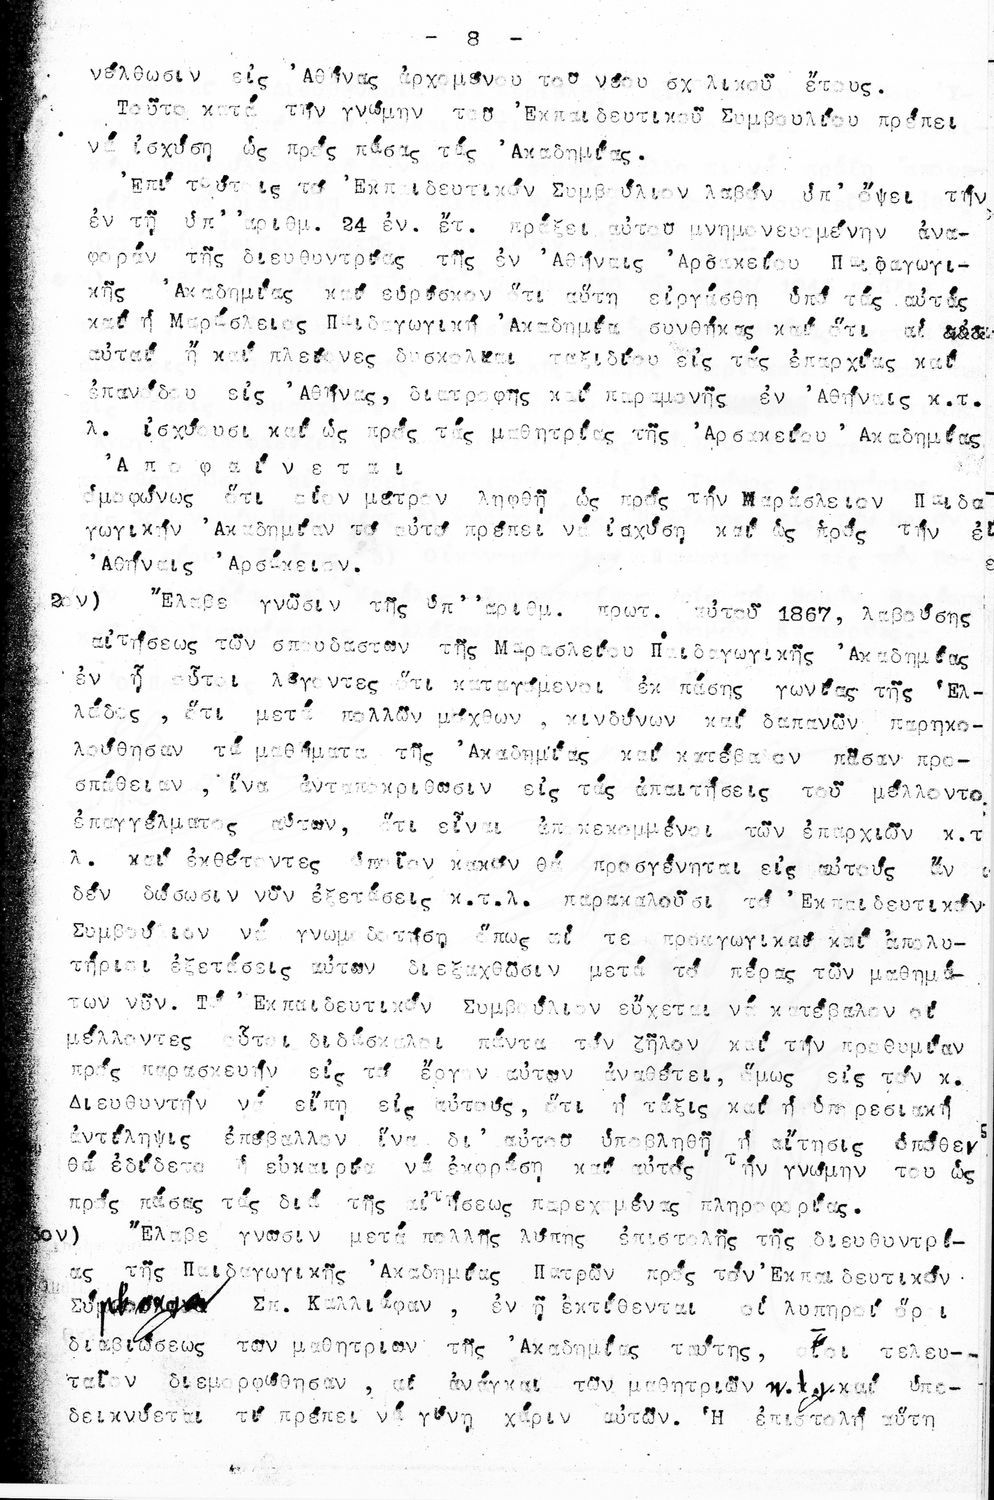 - 8 -
νέλθωσιν εἰς Ἀθήνας ἀρχομένου τοῦ νέου σχολικοῦ ἔτους.
Τοῦτο κατά τήν γνώμην τοῦ Ἐκπαιδευτικοῦ Συμβουλίου πρέπει
νά ἰσχύσῃ ὡς πρός πάσας τάς Ἀκαδημίας.
Ἐπί τούτοις τό Ἐκπαιδευτικόν Συμβούλιον λαβόν ὑπ' ὄψει τήν
ἐν τῇ ὑπ' ἀριθμ. 24 ἐν. ἔτ. πράξει αὐτοῦ μνημονευομένην ἀνα-
φοράν τῆς διευθυντρίας τῆς ἐν Ἀθήναις Ἀρσακείου Παιδαγωγι-
κῆς Ἀκαδημίας καί εὑρίσκον ὅτι αὕτη εἰργάσθη ὑπό τάς αὐτάς
καί ἡ Μαράσλειος Παιδαγωγική Ἀκαδημία συνθήκας καί ὅτι αἱ
αὐταί ἤ καί πλείονες δυσκολίαι ταξιδίου εἰς τάς ἐπαρχίας καί
ἐπανόδου εἰς Ἀθήνας, διατροφῆς καί παραμονῆς ἐν Ἀθήναις κ.τ.
λ. ἰσχύουσι καί ὡς πρός τάς μαθητρίας τῆς Ἀρσακείου Ἀκαδημίας
Ἀ π ο φ α ί ν ε τ α ι
ὁμοφώνως ὅτι οἷον μέτρον ληφθῇ ὡς πρός τήν Μαράσλειον Παιδα-
γωγικήν Ἀκαδημίαν τό αὐτό πρέπει νά ἰσχύσῃ καί ὡς πρός τήν ἐ
Ἀθήναις Ἀρσάκειον.
2ον) Ἔλαβε γνῶσιν τῆς ὑπ' ἀριθμ. πρωτ. αὐτοῦ 1867, λαβούσης
αἰτήσεως τῶν σπουδαστῶν τῆς Μαρασλείου Παιδαγωγικῆς Ἀκαδημίας
ἐν ᾗ οὗτοι λέγοντες ὅτι καταγόμενοι ἐκ πάσης γωνίας τῆς Ἑλ-
λάδος , ὅτι μετά πολλῶν μόχθων , κινδύνων καί δαπανῶν παρηκο-
λούθησαν τά μαθήματα τῆς Ἀκαδημίας καί κατέβαλον πᾶσαν προ-
σπάθειαν , ἵνα ἀνταποκριθῶσιν εἰς τάς ἀπαιτήσεις τοῦ μέλλοντο
ἐπαγγέλματος αὐτῶν, ὅτι εἶναι ἀποκεκομμένοι τῶν ἐπαρχιῶν κ.τ
λ. καί ἐκθέτοντες ὁποῖον κακόν θά προσγένηται εἰς αὐτούς ἄν
δέν δώσωσιν νῦν ἐξετάσεις κ.τ.λ. παρακαλοῦσι τό Ἐκπαιδευτικόν
Συμβούλιον νά γνωμοδοτήσῃ ὅπως αἱ τε προαγωγικαί καί ἀπολυ-
τήριοι ἐξετάσεις αὐτῶν διεξαχθῶσιν μετά τό πέρας τῶν μαθημά-
των νῦν. Τό Ἐκπαιδευτικόν Συμβούλιον εὔχεται νά κατέβαλον οἱ
μέλλοντες οὗτοι διδάσκαλοι πάντα τόν ζῆλον καί τήν προθυμίαν
πρός παρασκευήν εἰς τό ἔργον αὐτῶν ἀναθέτει, ὅμως εἰς τόν κ.
Διευθυντήν νά εἴπῃ εἰς αὐτούς, ὅτι ἡ τάξις καί ἡ ὑπηρεσιακή
ἀντίληψις ἐπέβαλλον ἵνα δι' αὐτοῦ ὑποβληθῇ ἡ αἴτησις ὁπόθεν
θά ἐδίδετο ἡ εὐκαιρία νά ἐκφράσῃ καί αὐτός τήν γνώμην του ὡς
πρός πάσας τάς διά τῆς αἰτήσεως παρεχομένας πληροφορίας.
3ον) Ἔλαβε γνῶσιν μετά πολλῆς λύπης ἐπιστολῆς τῆς διευθυντρί-
ας τῆς Παιδαγωγικῆς Ἀκαδημίας Πατρῶν πρός τόν Ἐκπαιδευτικόν
Σύμβουλον Σπ. Καλλιάφαν , ἐν ᾗ ἐκτίθενται οἱ λυπηροί ὅροι
διαβιώσεως τῶν μαθητριῶν τῆς Ἀκαδημίας ταύτης, οἷοι τελευ-
ταῖον διεμορφώθησαν , αἱ ἀνάγκαι τῶν μαθητριῶν κ.λ.π. καί ὑπο-
δεικνύεται τί πρέπει νά γίνῃ χάριν αὐτῶν. Ἡ ἐπιστολή αὕτη